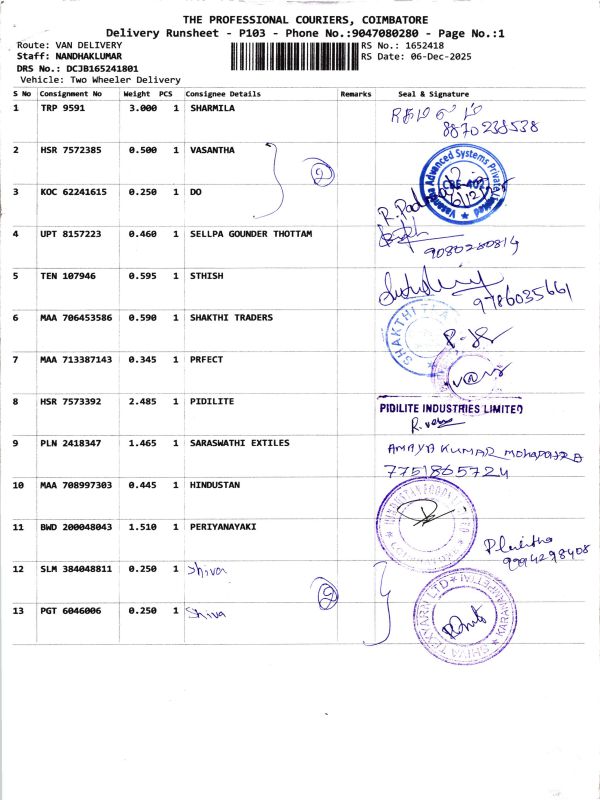 THE PROFESSIONAL COURIERS, COIMBATORE
Delivery Runsheet - P103 - Phone No.:9047080280 - Page No.:1
Route: VAN DELIVERY RS No.: 1652418
Staff: NANDHAKLUMAR RS Date: 06-Dec-2025
DRS No.: DCJB165241801
Vehicle: Two Wheeler Delivery
S No Consignment No Weight PCS Consignee Details Remarks Seal & Signature
1 TRP 9591 3.000 1 SHARMILA
8870238538
2 HSR 7572385 0.500 1 VASANTHA
2
Vasantha Advanced Systems Private Limited
CBE-402
3 KOC 62241615 0.250 1 DO
4 UPT 8157223 0.460 1 SELLPA GOUNDER THOTTAM
9080280814
5 TEN 107946 0.595 1 STHISH
9786035661
6 MAA 706453586 0.590 1 SHAKTHI TRADERS
SHAKTHI
7 MAA 713387143 0.345 1 PRFECT
8 HSR 7573392 2.485 1 PIDILITE
PIDILITE INDUSTRIES LIMITED
9 PLN 2418347 1.465 1 SARASWATHI EXTILES
KUMAR
7751865724
10 MAA 708997303 0.445 1 HINDUSTAN
11 BWD 200048043 1.510 1 PERIYANAYAKI
9994298408
12 SLM 384048811 0.250 1 Shiva
2
13 PGT 6046006 0.250 1 Shiva
SHIVA TEXYARN LTD KARAMADAI